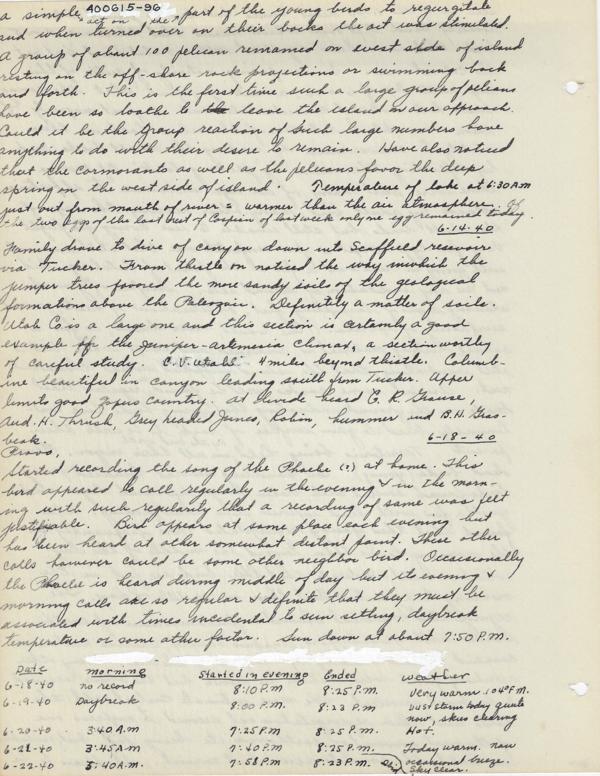 400615-96
a simple act on the part of the young birds to regurgitate
and when turned over on their backs the act was stimulated.
A group of about 100 pelican remained on west side of island
resting on the off-shore rock projections or swimming back
and forth. This is the first time such a large group of pelicans
have been so loathe to leave the island on our approach.
Could it be the group reaction of such large numbers have
anything to do with their desire to remain. Have also noticed
that the cormorants as well as the pelicans favor the deep
spring on the west side of island. Temperature of lake at 6:30 A.M
just out from mouth of river = warmer than the air atmosphere. Of
the two eggs of the last nest of Caspian of last week only one egg remained today.
6-14-40
Family drove to divide of canyon down into Scoffield resevoir
via Tucker. From thistle on noticed the way in which the
juniper trees favored the more sandy soils of the geological
formations above the Paleozoic. Definitely a matter of soils.
Utah Co is a large one and this section is certainly a good
example of the juniper-artemesia climax, a section worthy
of careful study. 4 miles beyond thistle. Columb-
ine beautiful in canyon leading south from Tucker. Upper
limits good country. At divide heard G. R. Grouse,
Aud. H. Thrush, Grey headed Junco, Robin, hummer and B.H. Gros-
beak.
6-18-40
Provo,
Started recording the song of the Phoebe (?) at home. This
bird appeared to call regularly in the evening & in the morn-
ing with such regularity that a recording of same was felt
justifiable. Bird appears at same place each evening but
has been heard at other somewhat distant point. These other
calls however could be some other neighbor bird. Occasionally
the Phoebe is heard during middle of day but its evening &
morning calls are so regular & definite that they must be
associated with times incidental to sun setting, daybreak
temperature or some other factor. Sun down at about 7:50 P.M.
Date morning Started in evening Ended weather
6-18-40 no record 8:10 P.M 8:25 P.M. Very warm 104° F.M.
6-19-40 Daybreak 8:00 P.M. 8:23 P.M Dust storm today quite
now, skies clearing
6-20-40 3:40 A.M 7:25 P.M 8:25 P.M. Hot.
6-21-40 3:45 A.M 7:40 P.M 8:25 P.M. Today warm. now
6-22-40 3:40 A.M. 7:58 P.M 8:23 P.M. occasional breeze.
Sky clear.